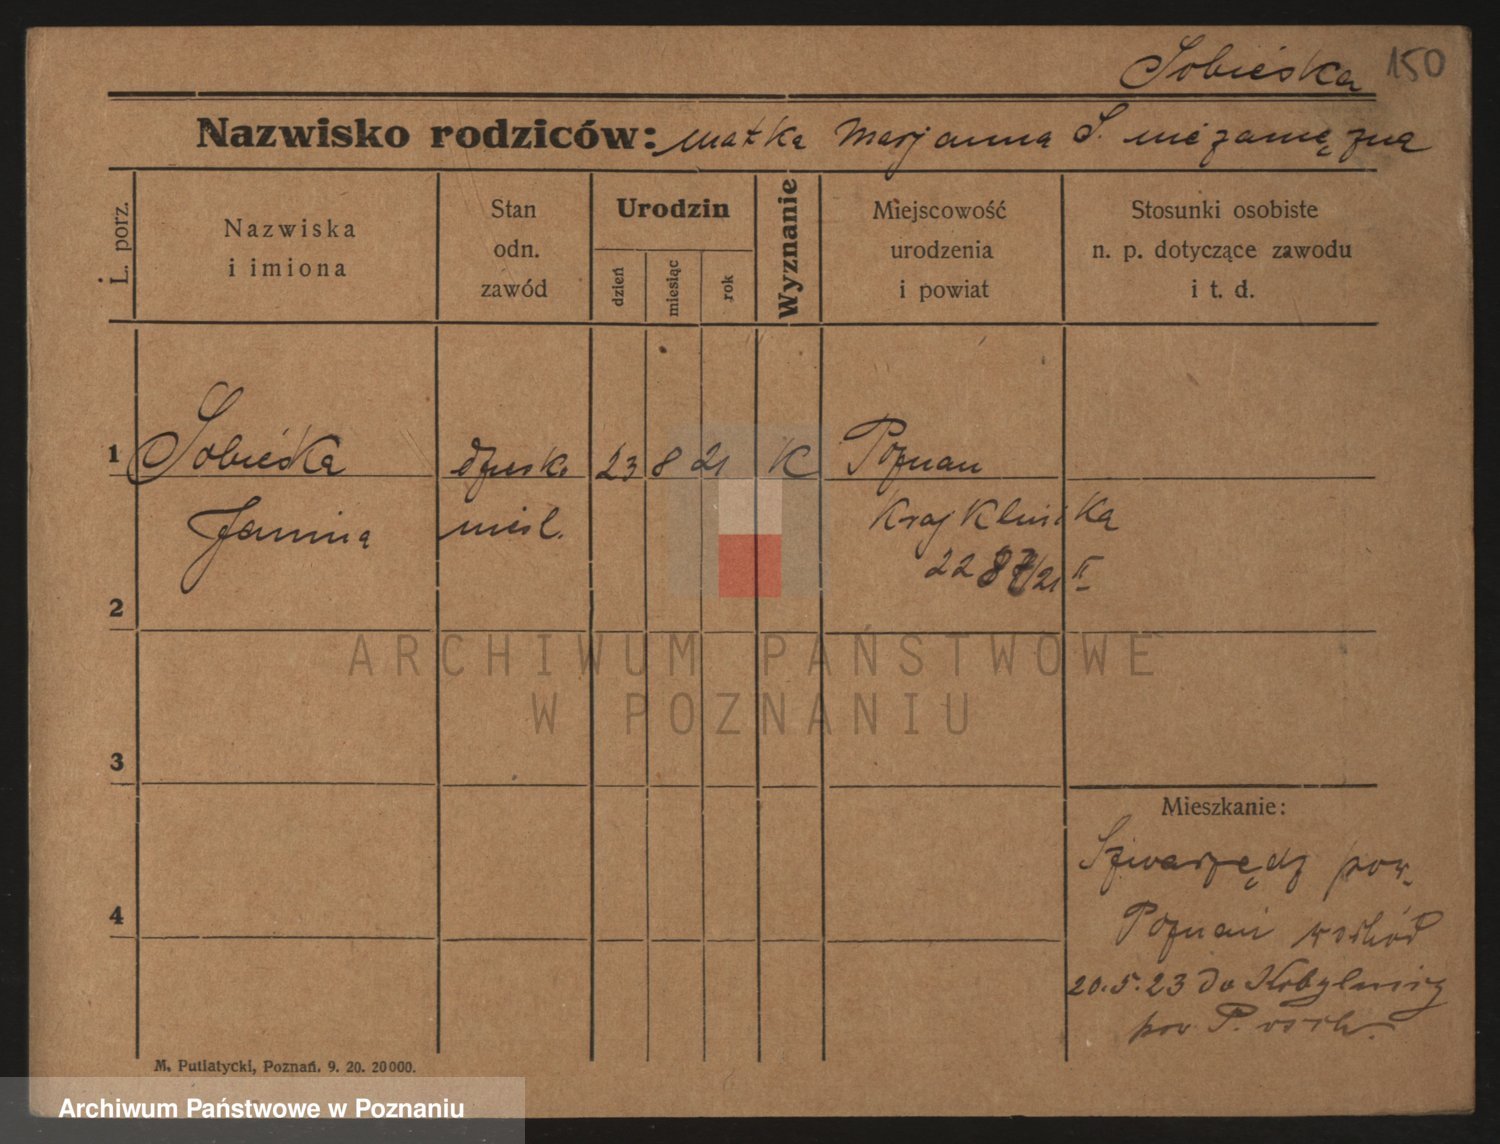 Sobieśka 150
Nazwisko rodziców: matka Marjanna S. niezamężna
L. porz.
Nazwiska
i imiona
Stan
odn.
zawód
Urodzin
dzień
miesiąc
rok
Wyznanie
Miejscowość
urodzenia
i powiat
Stosunki osobiste
n. p. dotyczące zawodu
i t. d.
1 Sobieśka dziecko 23 8 21 K Poznań
Janina nieśl. Kraj Klinika
22 /21 II
2
ARCHIWUM PAŃSTWOWE
W POZNANIU
3
Mieszkanie:
Szwarzędz pow.
4
Poznań wschód
20.5.23 do Kobylnicy
pow P. wsch.
M. Putiatycki, Poznań. 9. 20. 20000.
Archiwum Państwowe w Poznaniu